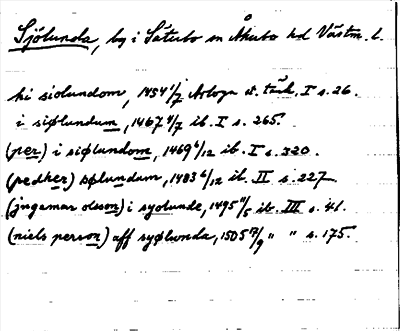 Sjölunda, by i Sätubo sn Åkubo hd Västm. l.
hi siolundom, 1454 1/7 Arboga st. tänk. I s. 26.
i siølundum, 1467 4/7 ib. I s. 265.
(per) i siølundom, 1469 6/12 ib. I s. 320.
(pedher) sølundum, 1483 6/12 ib. II s. 227
(jngamar olsson) i syolunde, 1495 11/5 ib. III s. 41.
(niels person) aff syølunda, 1505 /9 " " s. 175.